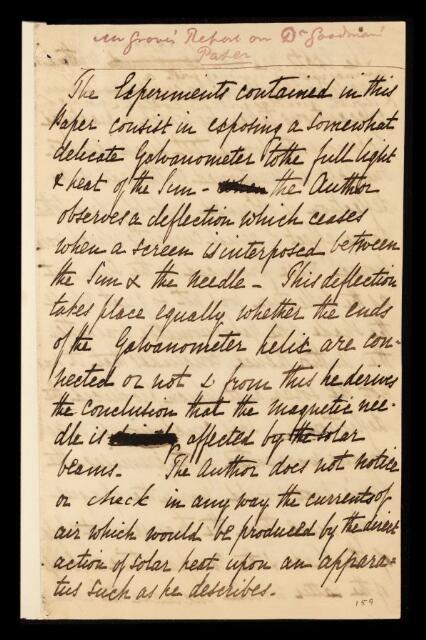 Mr Grove's Report on Dr Goodman's
Paper
The Experiments contained in this
Paper consist in exposing a somewhat
delicate Galvanometer to the full light
& heat of the Sun - when the Author
observes a deflection which ceases
when a screen is interposed between
the Sun & the needle - This deflection
takes place equally whether the ends
of the Galvanometer helix are con-
nected or not & from this he derives
the conclusion that the magnetic nee-
dle is affected by the solar
beams. The Author does not notice
or check in any way the currents of
air which would be produced by the direct
action of solar heat upon an appara-
tus such as he describes.
159